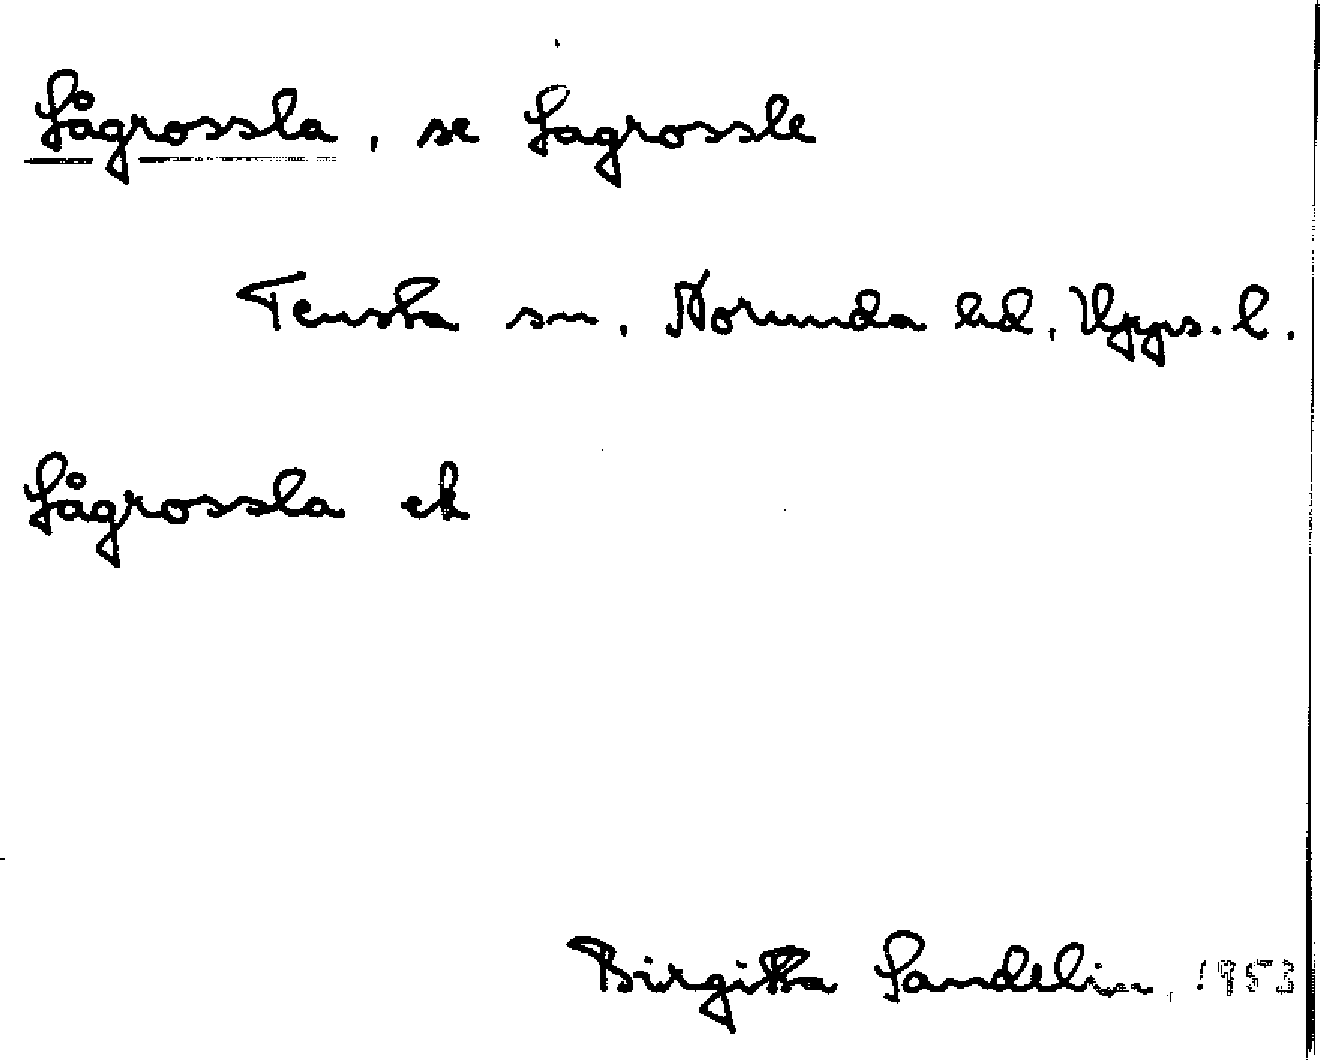 Sågrossla, se Sagrossle
Tensta sn. Norunda hd. Upps. l.
Sågrossla ek
Birgitta Sandelin, 1953